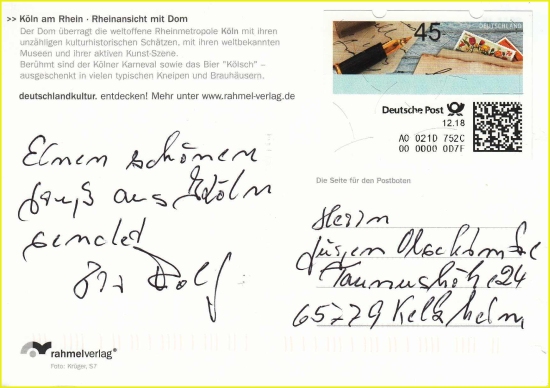 >> Köln am Rhein · Rheinansicht mit Dom
Der Dom überragt die weltoffene Rheinmetropole Köln mit ihren
unzähligen kulturhistorischen Schätzen, mit ihren weltbekannten
Museen und ihrer aktiven Kunst-Szene.
Berühmt sind der Kölner Karneval sowie das Bier "Kölsch" –
ausgeschenkt in vielen typischen Kneipen und Brauhäusern.
deutschlandkultur. entdecken! Mehr unter www.rahmel-verlag.de
45
DEUTSCHLAND
Deutsche Post
12.18
A0 021D 752C
00 0000 0D7F
Einen schönen
Gruß aus Köln
sendet
Rolf
Die Seite für den Postboten
Herrn
Jürgen
Taunushöhe 24
65779 Kelkheim
rahmelverlag®
Foto: Krüger, S7